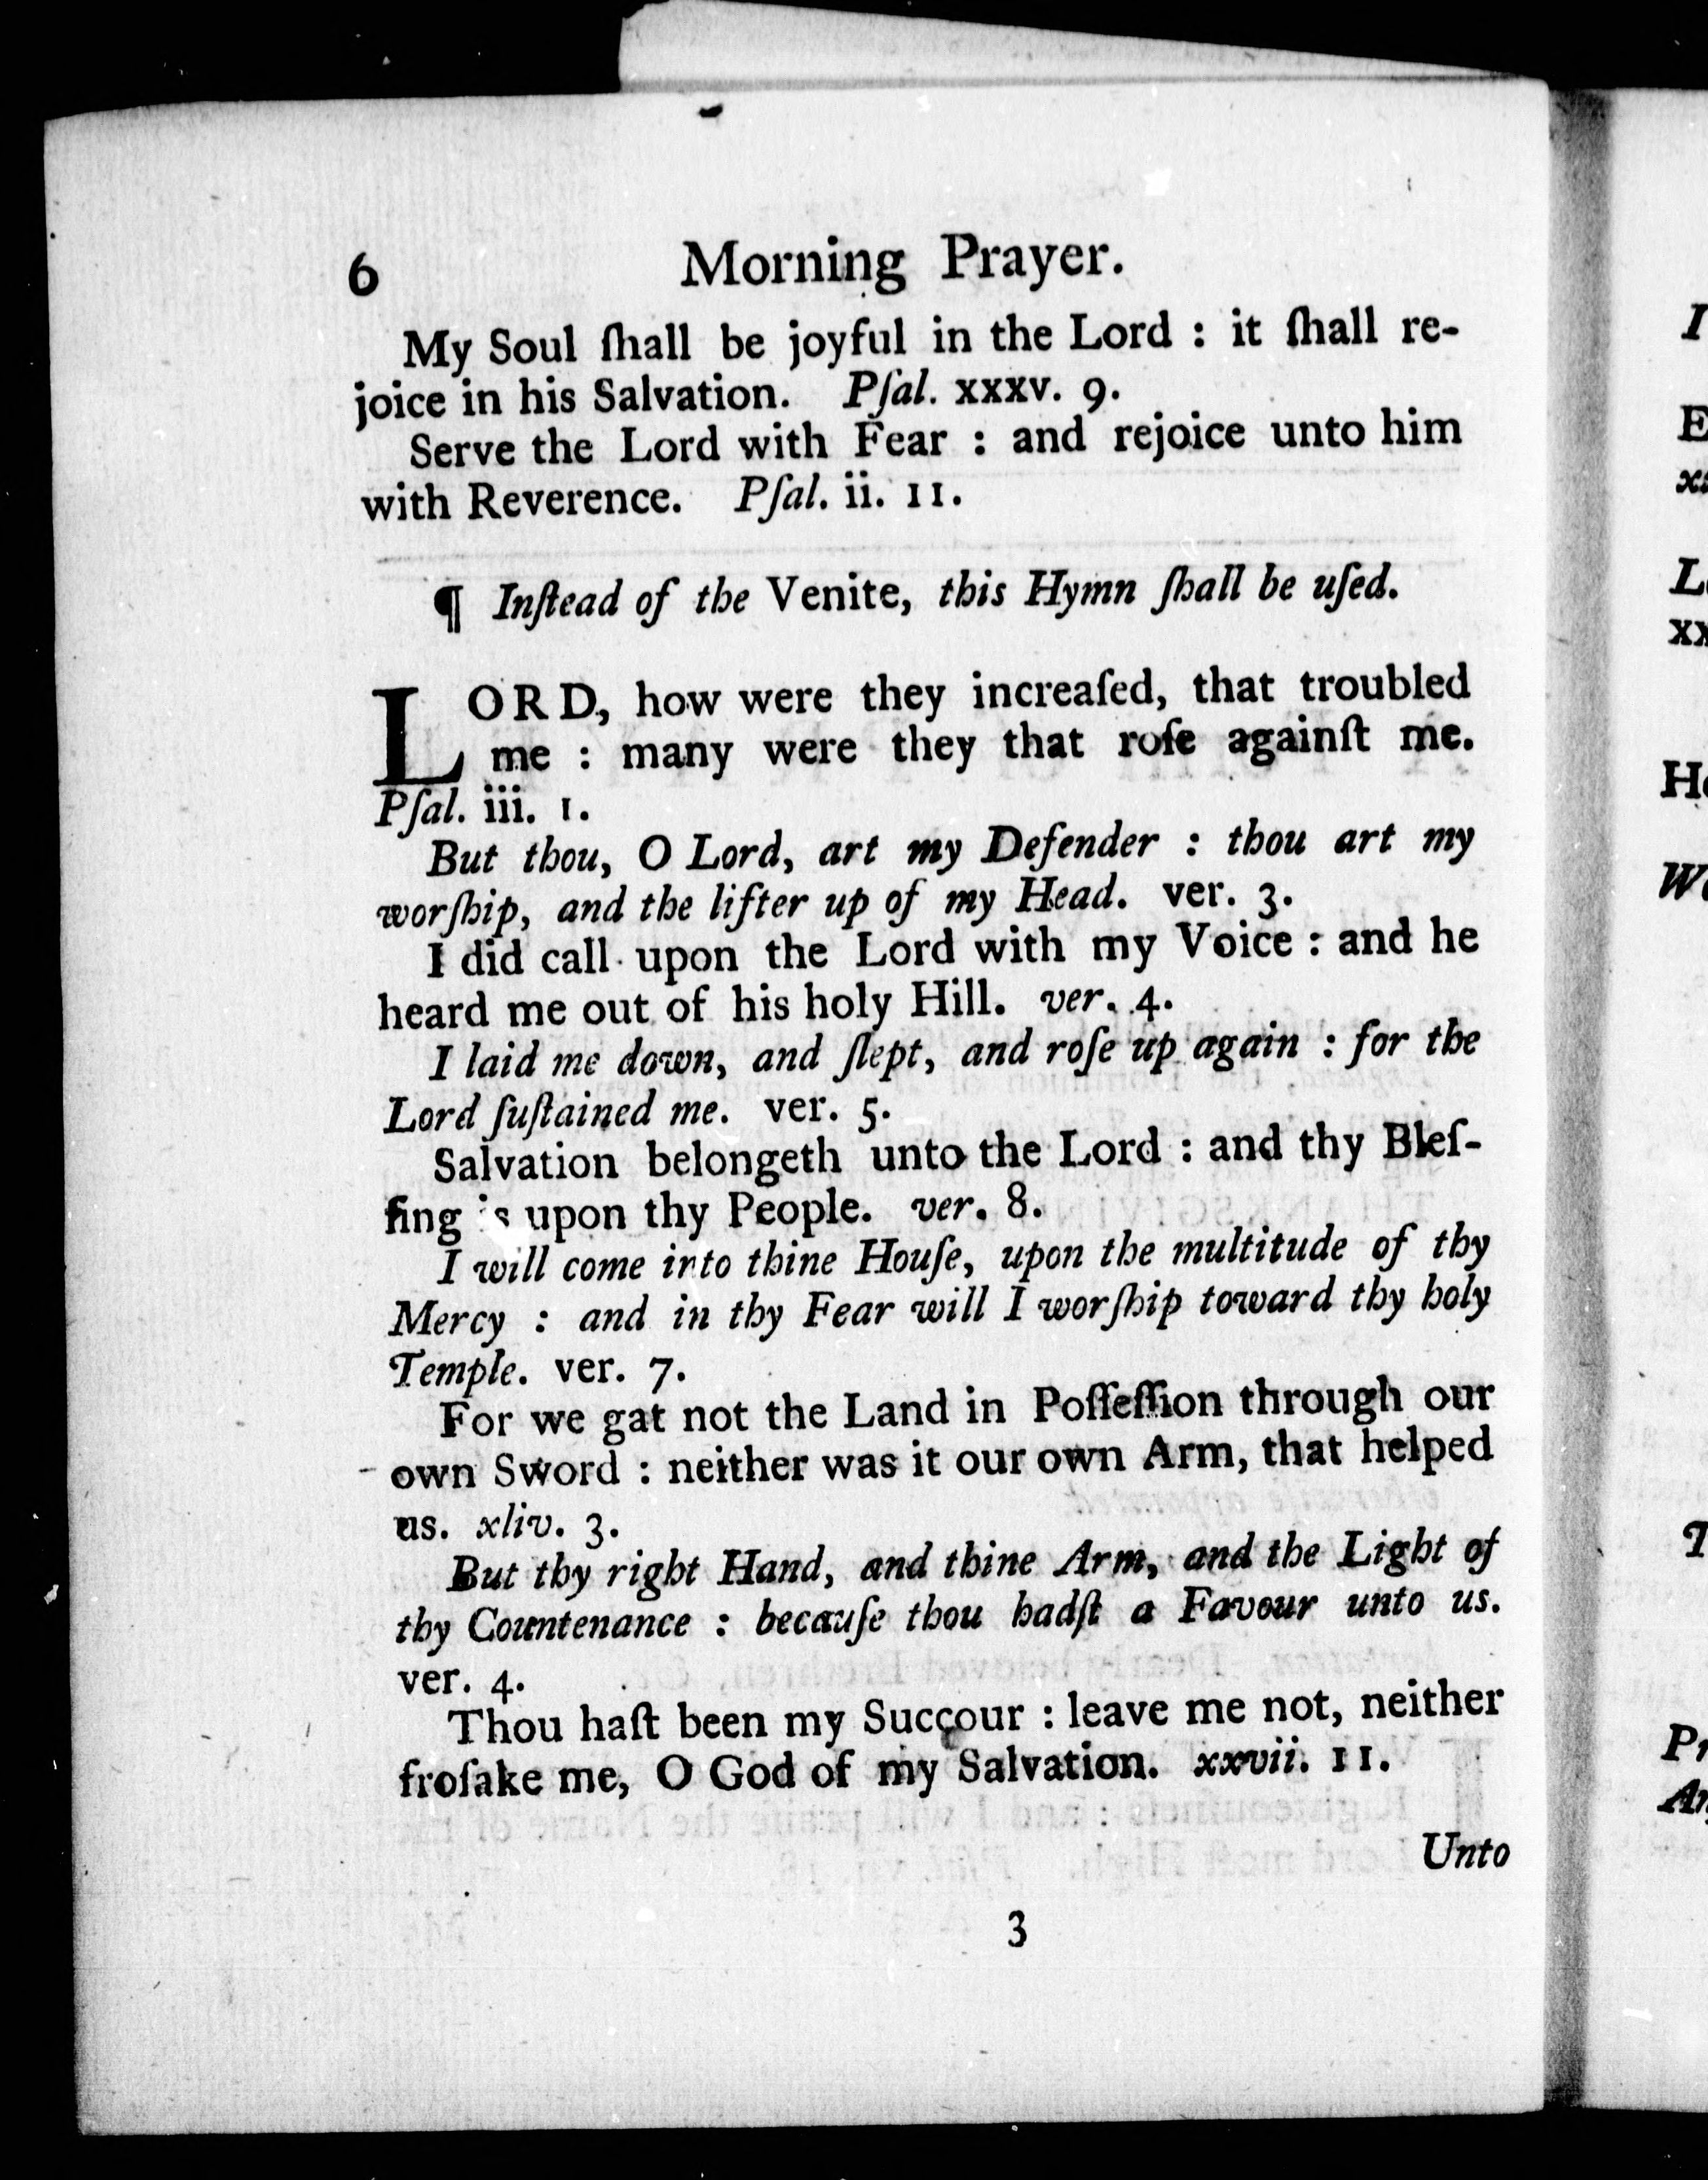 6 Morning Prayer.
My Soul ſhall be joyful in the Lord : it ſhall re-
joice in his Salvation. Pſal. xxxv. 9.
Serve the Lord with Fear : and rejoice unto him
with Reverence. Pſal. ii. 11.
¶ Inſtead of the Venite, this Hymn ſhall be uſed.
LORD, how were they increaſed, that troubled
me : many were they that roſe againſt me.
Pſal. iii. 1.
But thou, O Lord, art my Defender : thou art my
worſhip, and the lifter up of my Head. ver. 3.
I did call upon the Lord with my Voice : and he
heard me out of his holy Hill. ver. 4.
I laid me down, and ſlept, and roſe up again : for the
Lord ſuſtained me. ver. 5.
Salvation belongeth unto the Lord : and thy Bleſ-
ſing is upon thy People. ver. 8.
I will come into thine Houſe, upon the multitude of thy
Mercy : and in thy Fear will I worſhip toward thy holy
Temple. ver. 7.
For we gat not the Land in Poſſeſſion through our
own Sword : neither was it our own Arm, that helped
us. xliv. 3.
But thy right Hand, and thine Arm, and the Light of
thy Countenance : becauſe thou hadſt a Favour unto us.
ver. 4.
Thou haſt been my Succour : leave me not, neither
froſake me, O God of my Salvation. xxvii. 11.
Unto
3